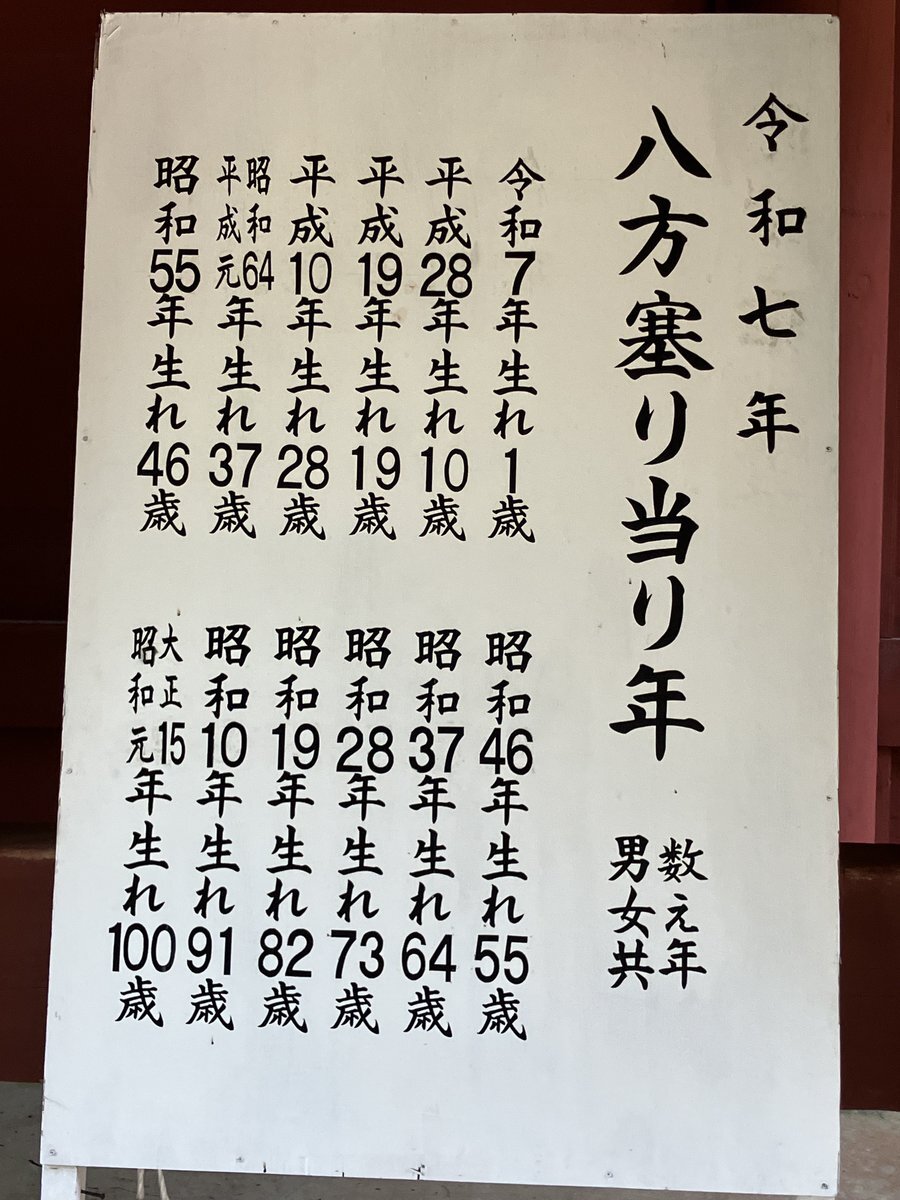 令和七年
八方塞り当り年
数え年
男女共
令和7年生れ1歳
平成28年生れ10歳
平成19年生れ19歳
平成10年生れ28歳
昭和64
平成元
年生れ37歳
昭和55年生れ46歳
昭和46年生れ55歳
昭和37年生れ64歳
昭和28年生れ73歳
昭和19年生れ82歳
昭和10年生れ91歳
大正15
昭和元
年生れ100歳